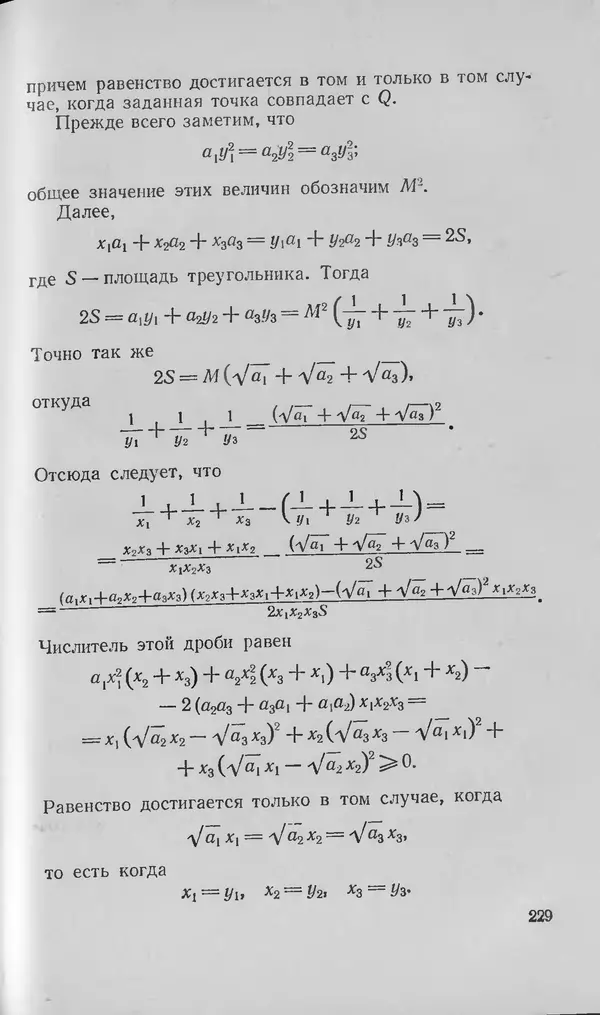 причем равенство достигается в том и только в том слу-
чае, когда заданная точка совпадает с Q.
Прежде всего заметим, что
a₁y₁² = a₂y₂² = a₃y₃²;
общее значение этих величин обозначим M².
Далее,
x₁a₁ + x₂a₂ + x₃a₃ = y₁a₁ + y₂a₂ + y₃a₃ = 2S,
где S — площадь треугольника. Тогда
2S = a₁y₁ + a₂y₂ + a₃y₃ = M² (1/y₁ + 1/y₂ + 1/y₃).
Точно так же
2S = M (√a₁ + √a₂ + √a₃),
откуда
1/y₁ + 1/y₂ + 1/y₃ = (√a₁ + √a₂ + √a₃)²/2S.
Отсюда следует, что
1/x₁ + 1/x₂ + 1/x₃ − (1/y₁ + 1/y₂ + 1/y₃) =
= (x₂x₃ + x₃x₁ + x₁x₂)/x₁x₂x₃ − (√a₁ + √a₂ + √a₃)²/2S =
= ((a₁x₁+a₂x₂+a₃x₃)(x₂x₃+x₃x₁+x₁x₂)−(√a₁ + √a₂ + √a₃)² x₁x₂x₃)/2x₁x₂x₃S.
Числитель этой дроби равен
a₁x₁² (x₂ + x₃) + a₂x₂² (x₃ + x₁) + a₃x₃² (x₁ + x₂) −
− 2 (a₂a₃ + a₃a₁ + a₁a₂) x₁x₂x₃ =
= x₁ (√a₂ x₂ − √a₃ x₃)² + x₂ (√a₃ x₃ − √a₁ x₁)² +
+ x₃ (√a₁ x₁ − √a₂ x₂)² ⩾ 0.
Равенство достигается только в том случае, когда
√a₁ x₁ = √a₂ x₂ = √a₃ x₃,
то есть когда
x₁ = y₁, x₂ = y₂, x₃ = y₃.
229